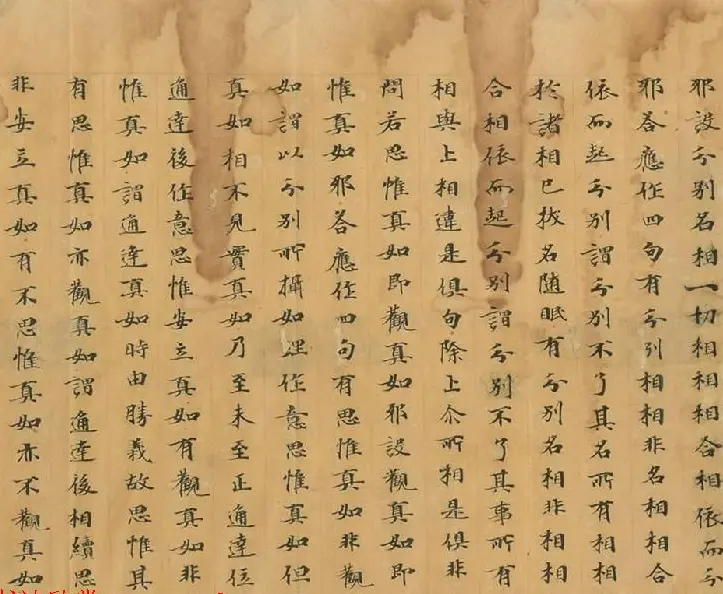 耶設分別名相一切相相相合相依而分
耶答應作四句有分別相相非名相相合
依而起分別謂分別不了其名所有相相
於諸相已拔名随眠有分別名相非相相
合相依而起分別謂分別不了其事所有
相與上相違是俱句除上尒所相是俱非
問若思惟真如即觀真如耶設觀真如即
惟真如耶答應作四句有思惟真如非觀
如謂以分別所攝如理作意思惟真如但
真如相不見實真如乃至未至正通達位
通達後作意思惟安立真如有觀真如非
惟真如謂通達真如時由勝義故思惟其
有思惟真如亦觀真如謂通達後相續思
非安立真如有不思惟真如亦不觀真如